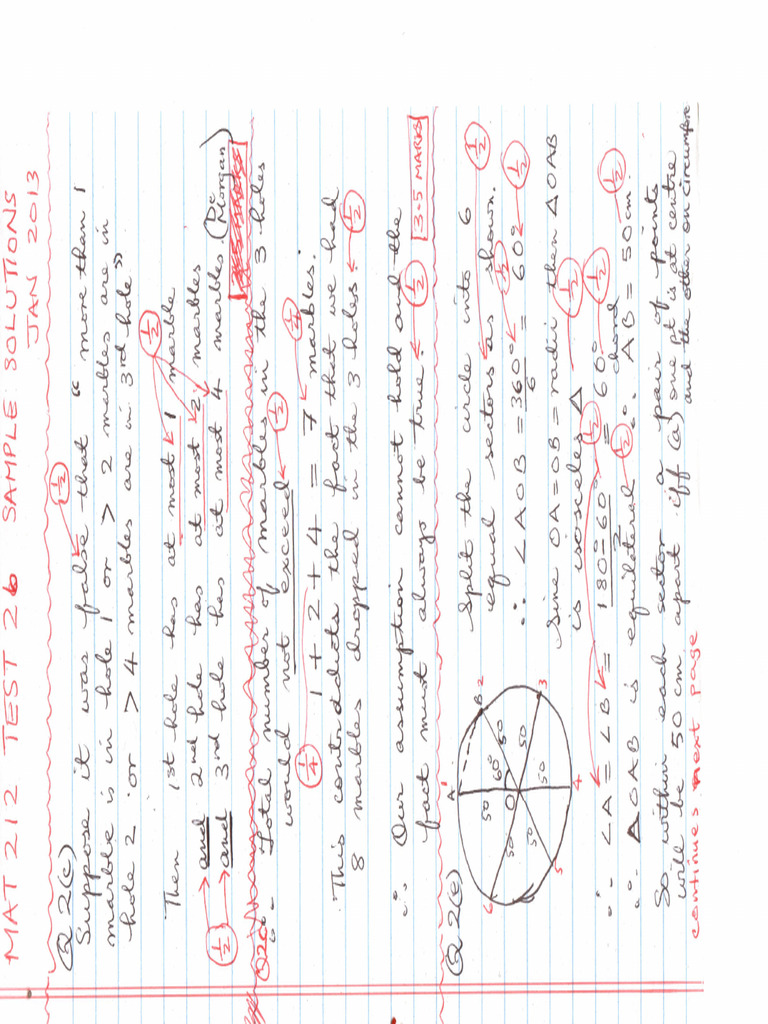 MAT 212 TEST 2b SAMPLE SOLUTIONS
JAN 2013
Q 2(c)
Suppose it was false that " more than 1
marble is in hole 1 or > 2 marbles are in
hole 2 or > 4 marbles are in 3rd hole"
1/2
Then 1st hole has at most 1 marble
and 2nd hole has at most 2 marbles
and 3rd hole has at most 4 marbles. (De Morgan)
1/2
1/2
∴ Total number of marbles in the 3 holes
would not exceed
1/2
1 + 2 + 4 = 7 marbles.
1/4
1/4
This contradicts the fact that we had
8 marbles dropped in the 3 holes.
1/2
∴ Our assumption cannot hold and the
fact must always be true.
1/2
3.5 MARKS
Q 2(e)
Split the circle into 6
equal sectors as shown.
1/2
∴ ∠AOB = 360°/6 = 60°
1/2
1/2
Sine OA = OB = radii then △OAB
is isosceles △
1/2
∴ ∠A = ∠B = 180°-60/2 = 60°
1/2
1/2
∴ △OAB is equilateral ∴ chord AB = 50cm.
1/2
1/2
A 1
B 2
3
4
5
6
O
60°
60
50
50
50
50
50
So within each sector a pair of points
will be 50 cm apart iff (a) one pt is at centre
and the other on circumfre
continues next page